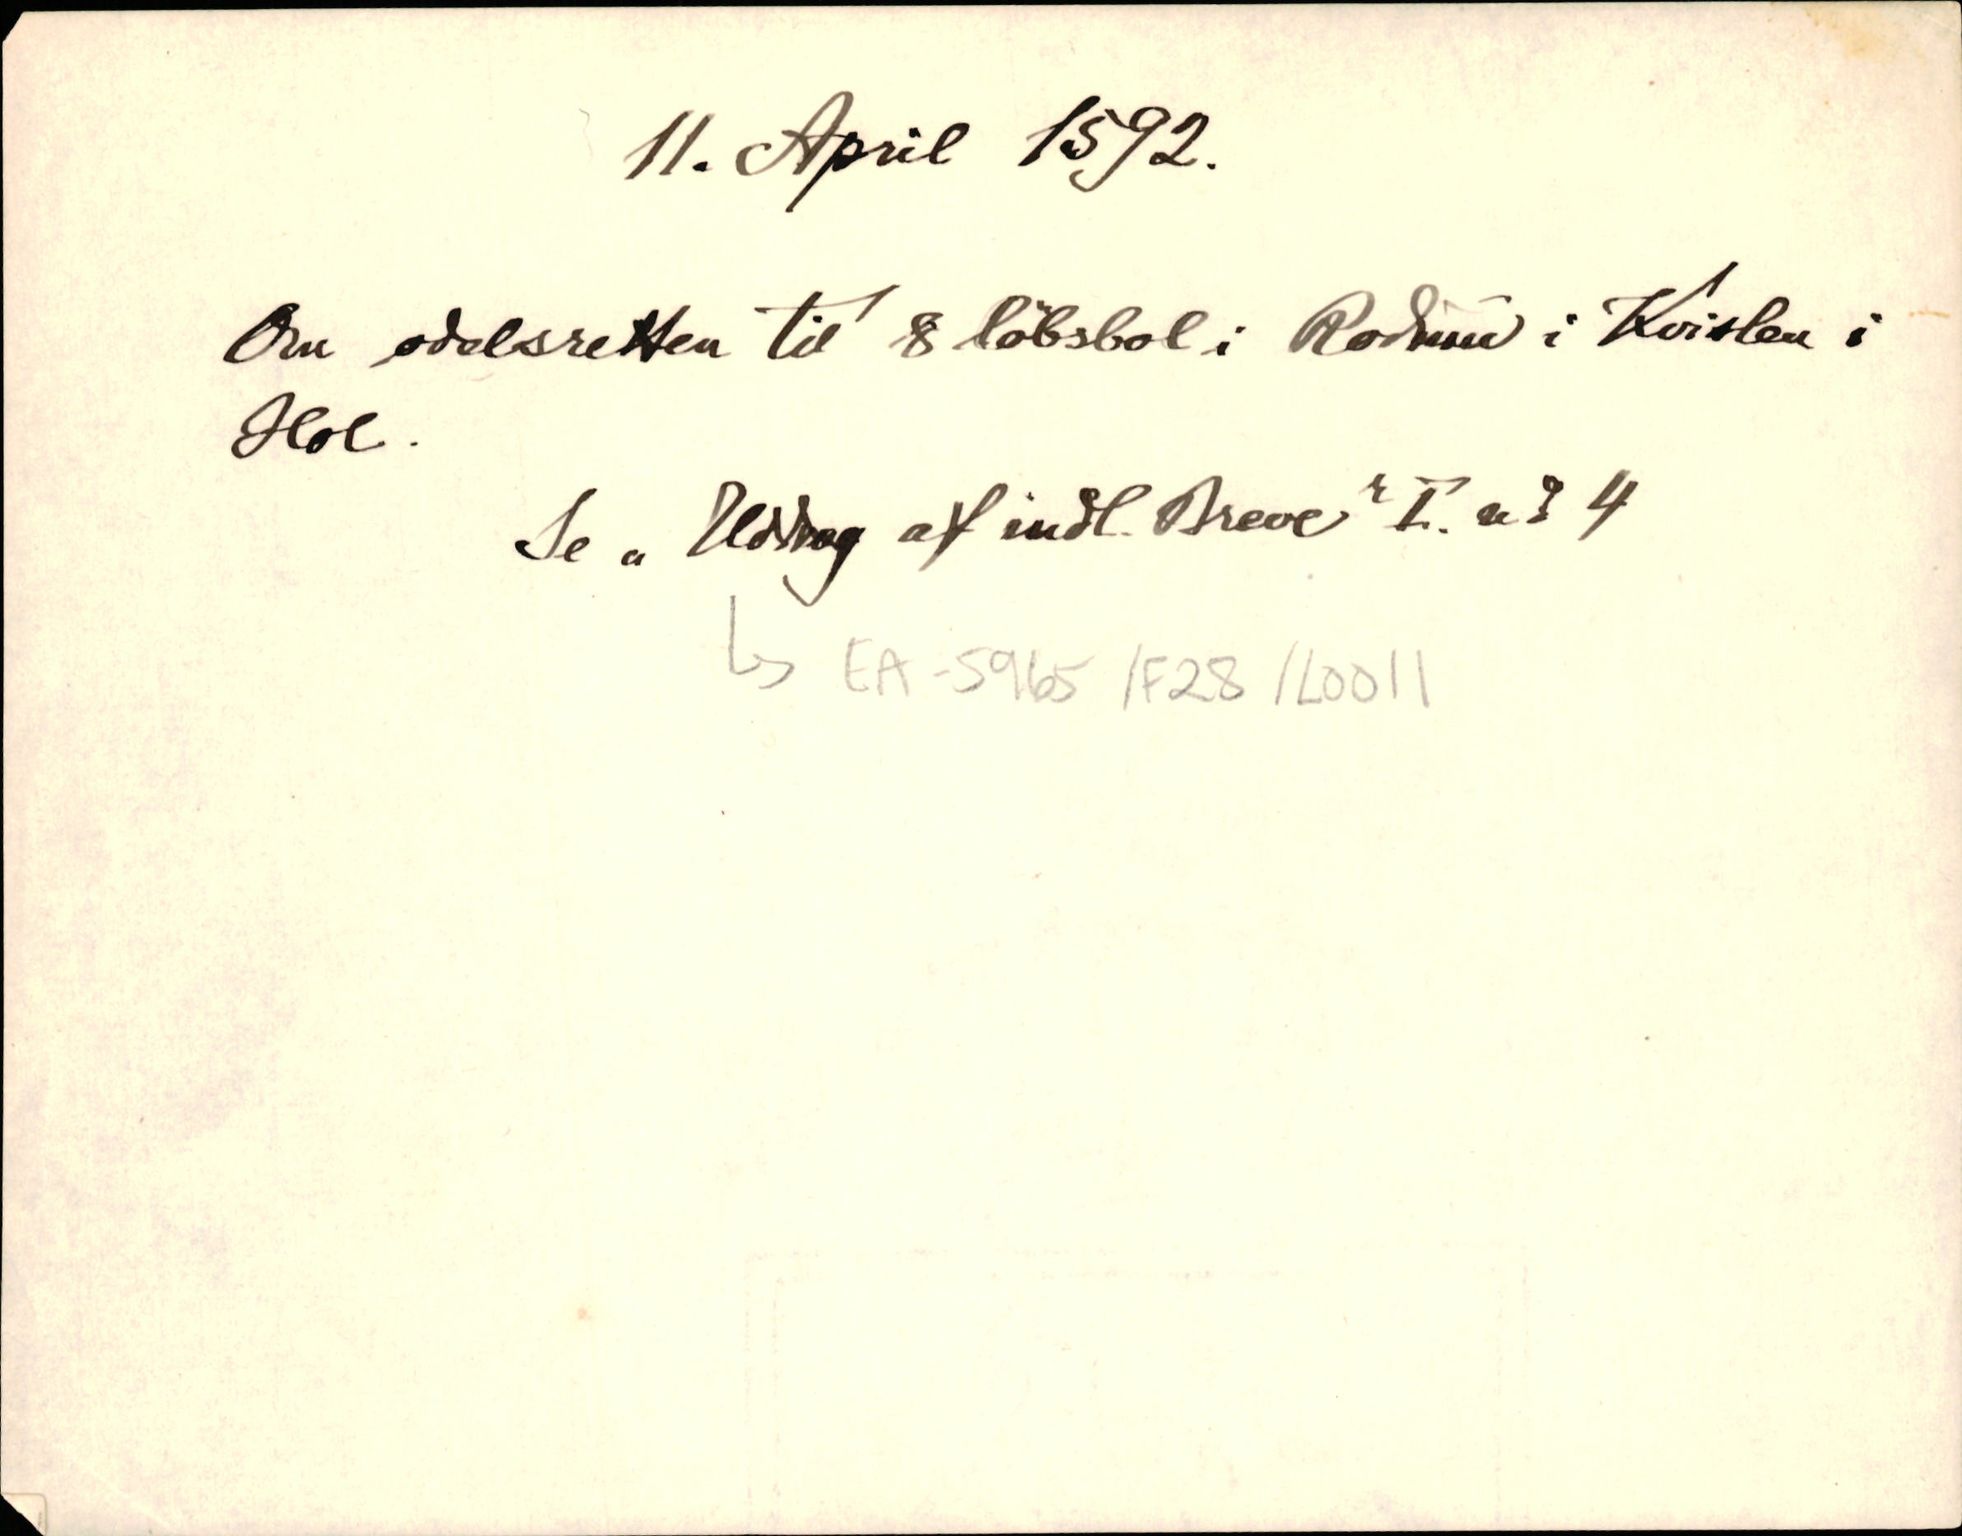 11. April 1592.
Om odelsretten til 8 löbsbol i i Kvislen i
Hol.
Se „Uddrag af indl. Breve" I. nr 4
↳ EA-5965 /F28 /L0011